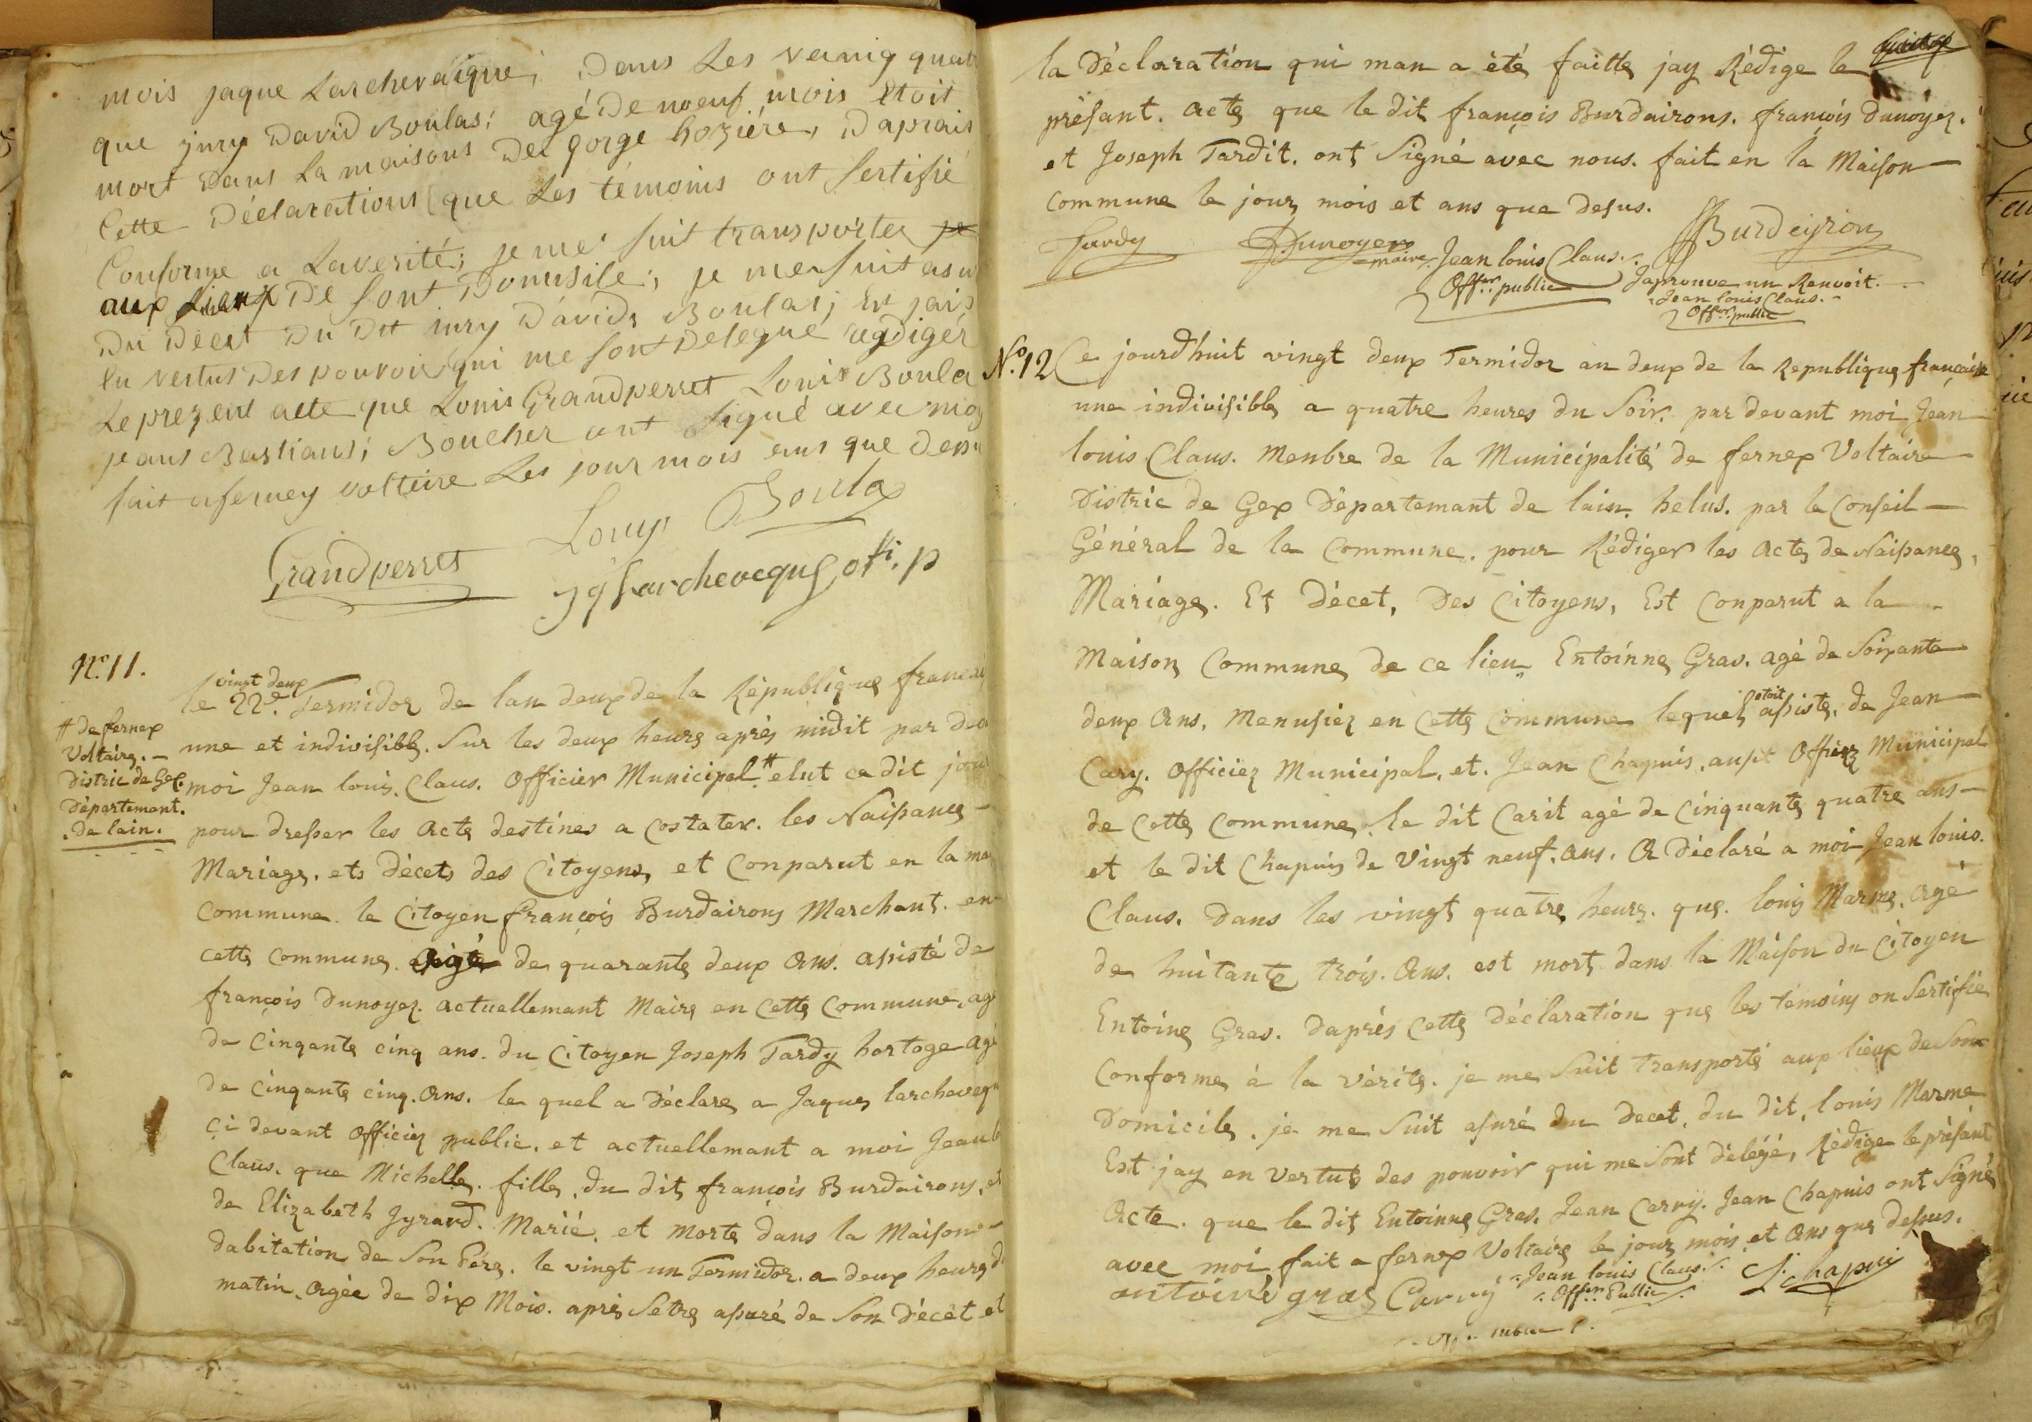 mois jaque Larchevaique; Dans Les veinig quat
que jury David Boulas; agé De noeuf mois etoit
mort Dans La maisons De gorge hoziére, Daprais
Cette Déclarations que Les témoins ont sertifié
Conforme a Laverité; je me suit transportez
aux Lieux De sont Domisile; je me suit asu
Du Décet Du Dit jury Davids Boulas; Et jais
En vertus Des pouvoir qui me sont Delegue regdiger
Le prezent acte que Louis Grandperret Louis Boula
jeans Bastians; Boucher ont signé avec moy
fait a ferney volteire Les jour mois ans que Desu
Louys Boula
Grandperret
Jq Larchevecque ofi. p
N.º 11.
vingt deux
le 22.e Termidor de lan deux de la Républiqus francai
# de fernex
Voltaire. —
District de Gex.
Départemant.
. de lain.
une et indivisible. Sur les deux heurs aprés midit par dev
moi Jean louis. Claus. Officier Municipal # elut ce dit jou
pour dresser les Acte destinés a costater. les Naissances —
Mariage. ets décets des Citoyens, et Conparut en la ma
Commune. le Citoyen françois Burdairons Marchant. en
cette Commune. agé de quarante deux Ans. assisté de
françois Dunoyez. actuellemant Maire en Cette Commune. agé
de Cinqante cinq ans. du Citoyen Joseph Tardy hortoge agé
de Cinqante cinq. Ans. le quel a Déclare a Jaques larchaveq
çi devant officier public. et actuellemant a moi Jean l
Claus. que Michelle. fille. du dit françois Burdairons, et
de Elizabeth Gyrard. Marié. et Morte dans la Maison —
dabitation de son Pére. le vingt un Termidor. a deux heurs d
matin. agée de dix Mois. aprés Sétre assuré de son Décét et
la Déclaration qui man a été faitte jay Rédige le
présant. Acte que le dit françois Burdairons. françois dunoyez.
et Joseph Tardit. ont Signé avec nous. fait en la Maison —
Commune le jour mois et ans que desus.
Tardy Dunoyer maire Jean louis Claus. Offer. public Burdeyron
Japrouve un Renvoit.
Jean louis Claus.
Offer. public
N.º 12 Ce jourdhuit vingt deux Termidor an deux de la Republique française
une indivisible a quatre heures du Soir. par devant moi Jean
louis Claus. Menbre de la Municipalité de fernex Voltaire
Distric de Gex Départemant de lain. helus. par le Conseil —
Général de la Commune. pour Rédiger les Acte de Naissance,
Mariage. Et Décet, Des Citoyens, Est Conparut a la —
Maison Commune de ce lieu Entoinne Gras. agé de Soixante
deux Ans. Menusier en Cette Commune lequel etoit assiste. de Jean
Cary. Officier Municipal. et. Jean Chapuis. ausit Officier Municipal
de Cette Commune. le dit Carit agé de Cinquante quatre ans —
et le dit Chapuis de Vingt neuf. Ans. A déclaré a moi Jean louis.
Claus. Dans les vingt quatre heurs. que. louis Marme. Agé
de huitante trois. Ans. est mort dans la Maison du Citoyen
Entoine Gras. daprés Cette Déclaration que les témoins on Sertifie
Conforme à la vérite. je me Suit transporté aux lieux de Son
Domicile. je me Suit asuré du Decet. du dit. louis Marme
Est jay en Vertuts des pouvoir qui me Sont délégé, Rédige le présant
Acte. que le dit Entoinne Gras. Jean Carry. Jean Chapuis ont Signé
avec moi fait a fernex Voltaire le jour mois et Ans que dessus.
antoine gras Carry Jean louis Claus. Offer. Public J. chapuis